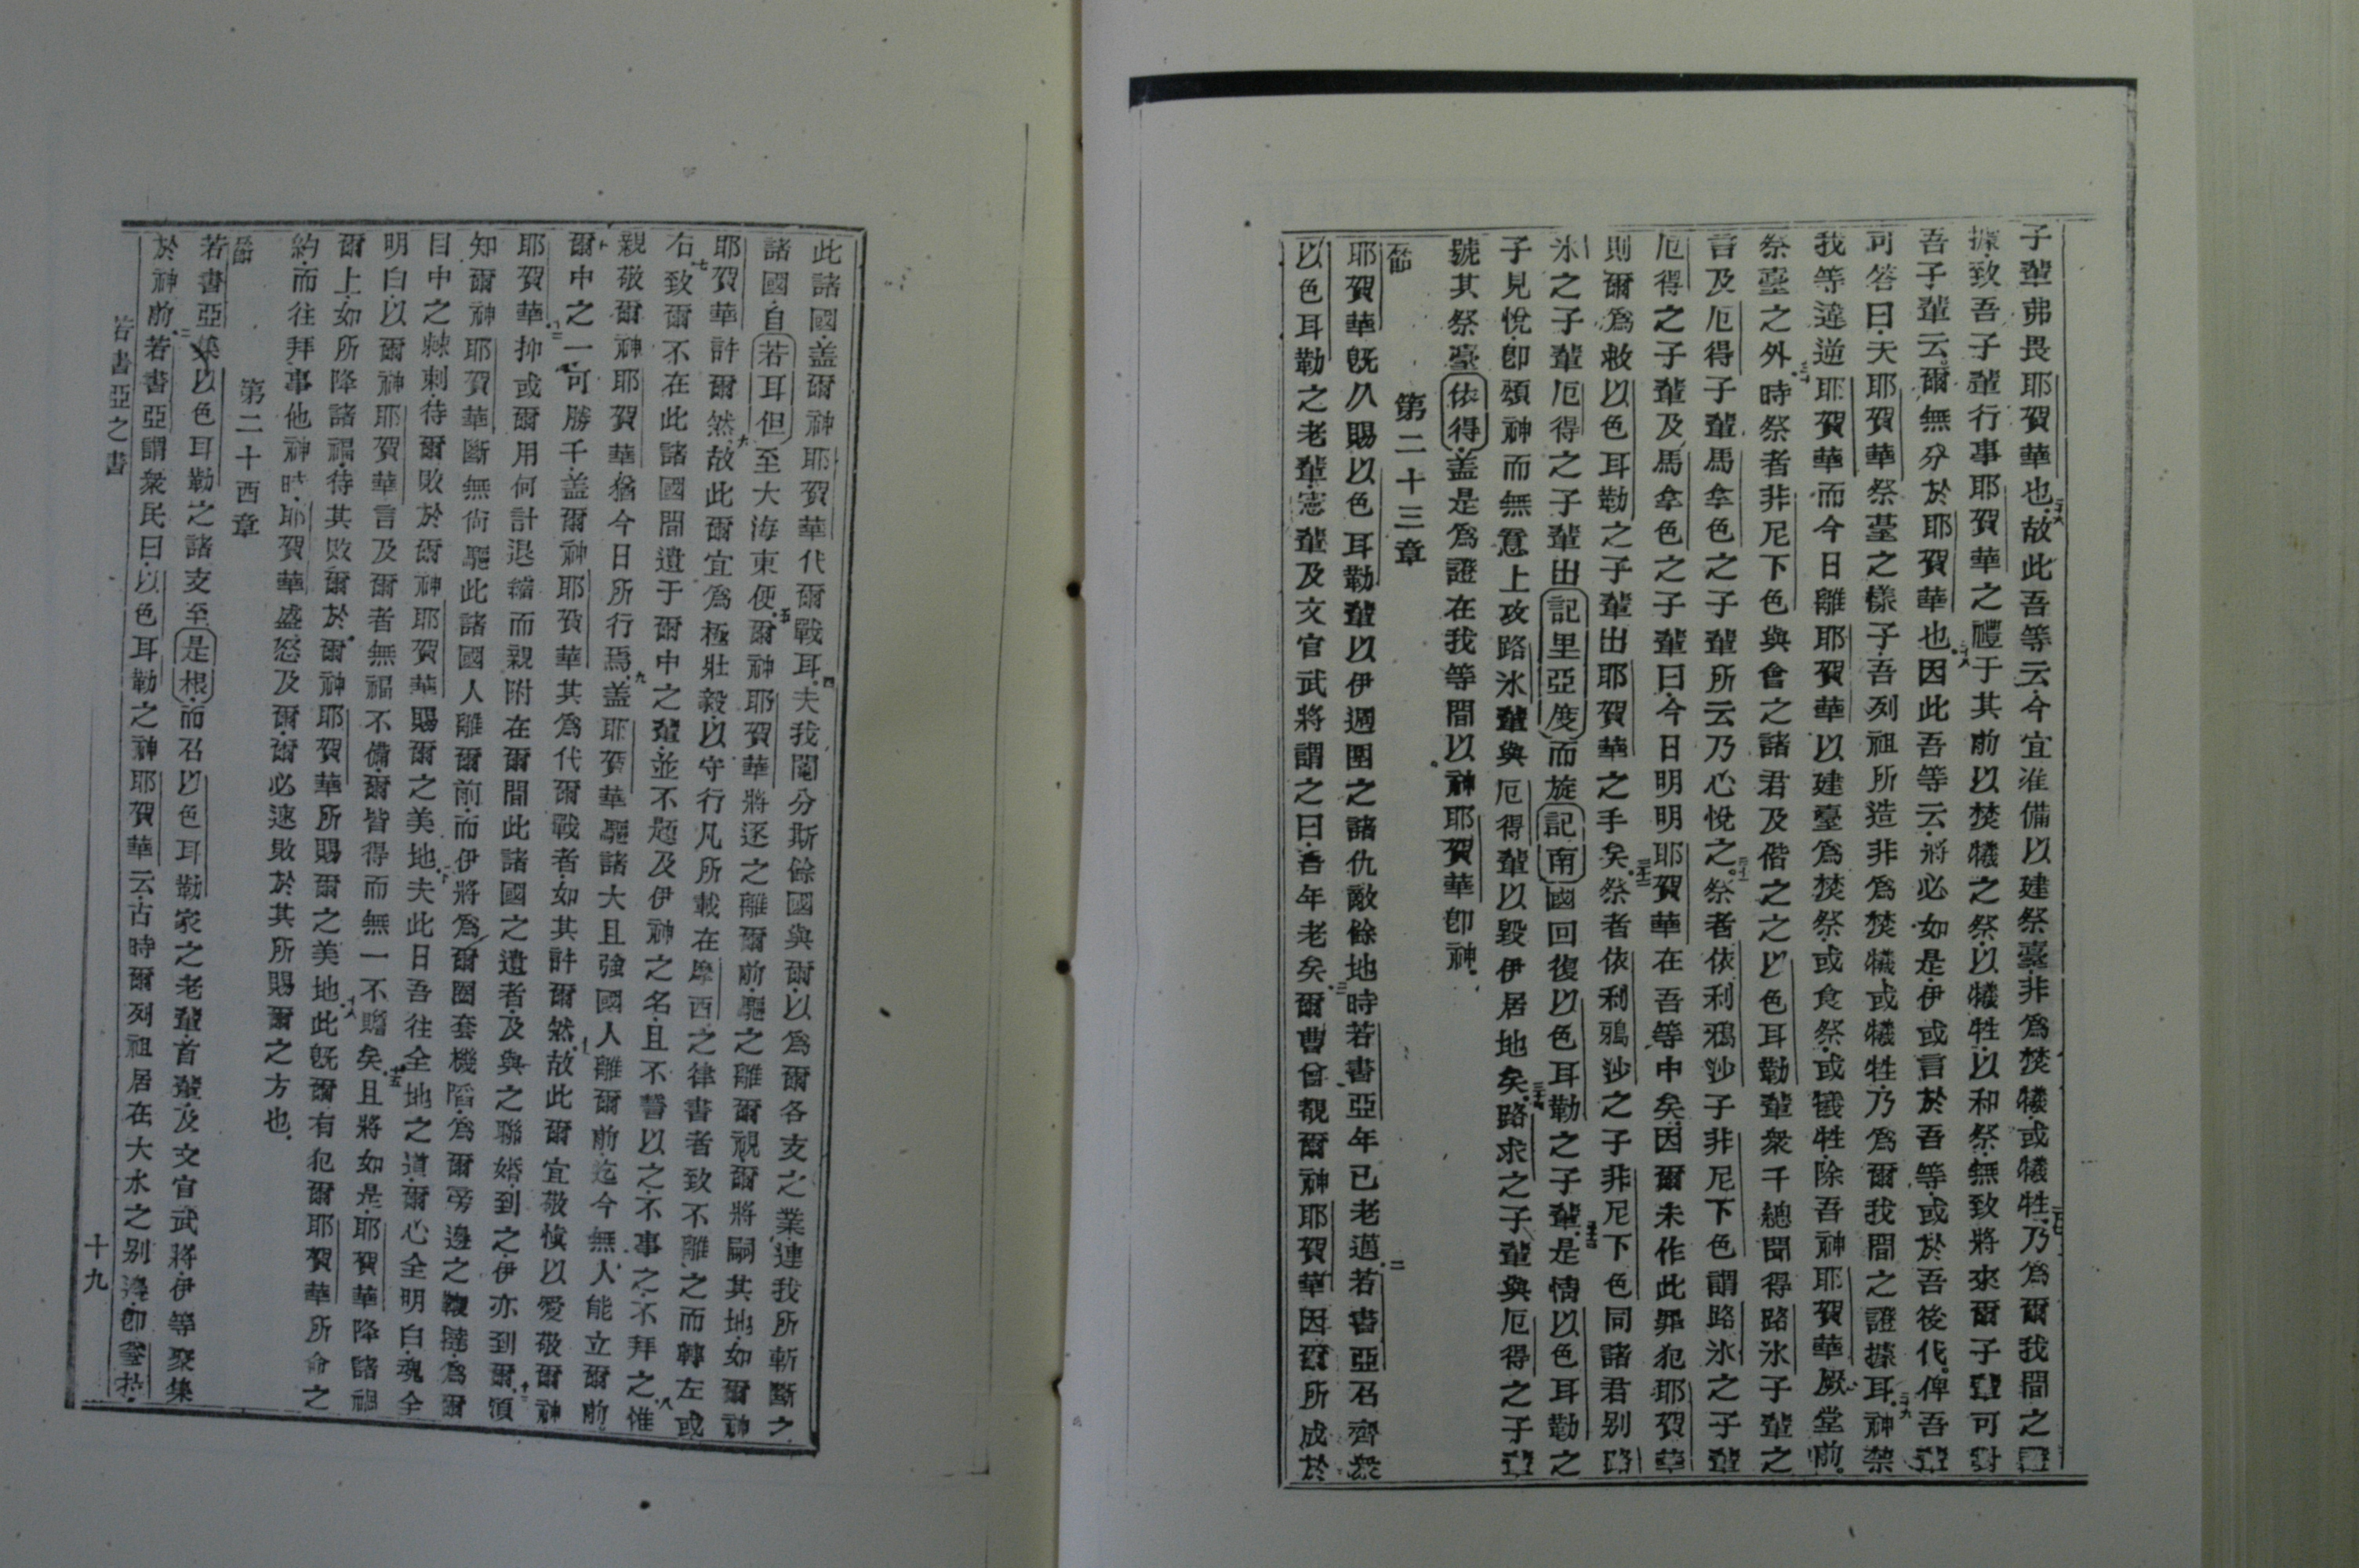 子輩弗畏耶賀華也故此吾等云今宜准備以建祭臺非爲焚犧或犧牲乃爲爾我間之證
據致吾子輩行事耶賀華之禮于其前以焚犧之祭以犧牲以和祭無致將來爾子輩可對
吾子輩云爾無分於耶賀華也因此吾等云將必如是伊或言於吾等或於吾後代俾吾輩
可答曰夭耶賀華祭臺之樣子吾列祖所造非爲焚犧或犧牲乃爲爾我間之證據耳神禁
我等違逆耶賀華而今日離耶賀華以建臺爲焚祭或食祭或犧牲除吾神耶賀華厥堂前
祭臺之外時祭者非尼下色與會之諸君及偕之之以色耳勒輩衆千總聞得路氷子輩之
言及厄得子輩馬拿色之子輩所云乃心悅之祭者依利鴉沙子非尼下色謂路氷之子輩
厄得之子輩及馬拿色之子輩曰今日明明耶賀華在吾等中矣因爾未作此罪犯耶賀華
則爾爲救以色耳勒之子輩出耶賀華之手矣祭者依利鴉沙之子非尼下色同諸君別路
氷之子輩厄得之子輩出記里亞度而旋記南國回復以色耳勒之子輩是情以色耳勒之
子見悅卽頌神而無意上攻路氷輩與厄得輩以毀伊居地矣路氷之子輩與厄得之子輩
號其祭臺依得盖是爲證在我等間以神耶賀華卽神
節 第二十三章
耶賀華旣久賜以色耳勒輩以伊週圍之諸仇敵餘地時若書亞年已老邁若書亞召齊衆
以色耳勒之老輩憲輩及文官武將謂之曰吾年老矣爾曹曾覩爾神耶賀華因爾所成於
此諸國盖爾神耶賀華代爾戰耳夫我鬮分斯餘國與爾以爲爾各支之業連我所斬斷之
諸國自若耳但至大海東便爾神耶賀華將逐之離爾前驅之離爾視爾將嗣其地如爾神
耶賀華許爾然故此爾宜爲極壯毅以守行凡所載在摩西之律書者致不離之而轉左或
右致爾不在此諸國間遺于爾中之輩並不題及伊神之名且不誓以之不事之不拜之惟
親敬爾神耶賀華猶今日所行焉盖耶賀華驅諸大且強國人離爾前迄今無人能立爾前
爾中之一可勝千盖爾神耶賀華其爲代爾戰者如其許爾然故此爾宜敬愼以愛敬爾神
耶賀華抑或爾用何計退縮而親附在爾間此諸國之遺者及與之聯婚到之伊亦到爾須
知爾神耶賀華斷無尙驅此諸國人離爾前而伊將爲爾圈套機陷爲爾旁邊之鞭撻爲爾
目中之棘刺待爾敗於爾神耶賀華賜爾之美地夫此日吾往全地之道爾心全明白魂全
明白以爾神耶賀華言及爾者無福不備爾皆得而無一不贍矣且將如是耶賀華降諸禍
爾上如所降諸福待其敗爾於爾神耶賀華所賜爾之美地此旣爾有犯爾耶賀華所命之
約而往拜事他神時耶賀華盛怒及爾爾必速敗於其所賜爾之方也
節 第二十四章
若書亞集以色耳勒之諸支至是根而召以色耳勒家之老輩首輩及文官武將伊等聚集
於神前若書亞謂衆民曰以色耳勒之神耶賀華云古時爾列祖居在大水之別邊卽
若書亞之書 十九